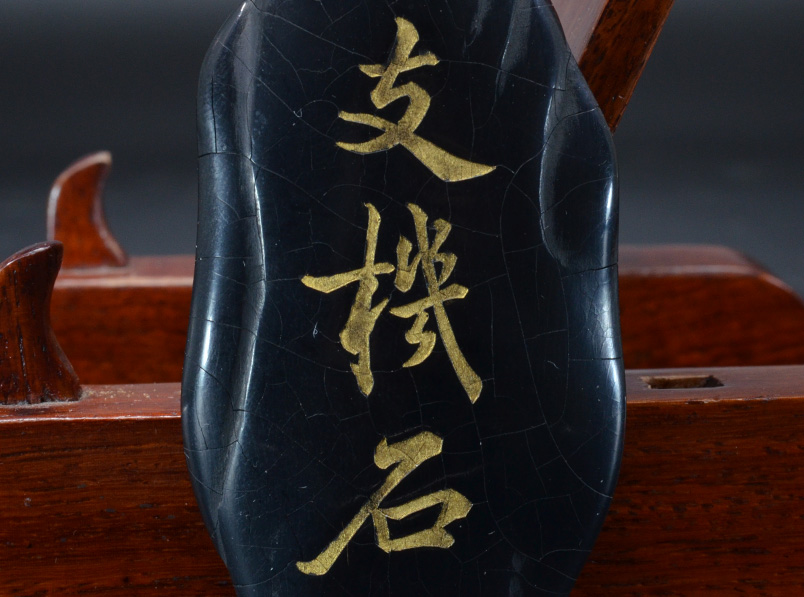 支機石